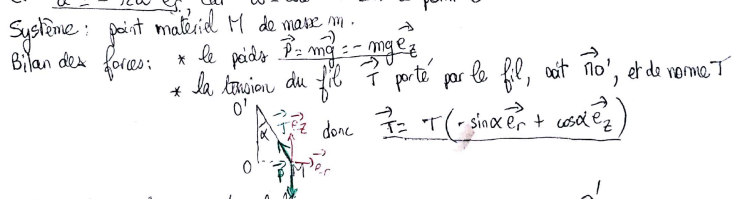 Système : point matériel M de masse m.
Bilan des forces : * le poids P⃗ = mg⃗ = - mg e⃗z
* la tension du fil T⃗ porté par le fil, soit MO'⃗, et de norme T
O'
α T⃗ e⃗z donc T⃗ = T(-sinα e⃗r + cosα e⃗z)
O P⃗ M e⃗r